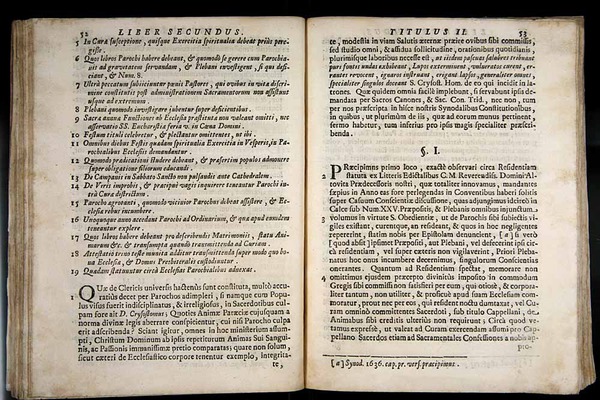 52 LIBER SECUNDUS.
5 In Cura susceptione, quisque Exercitia Spiritualia debeat priùs peragisse.
6 Quos libros Parochi habere debeant, & quomodo se gerere cum Parochianis
ad gravatorem servandam, & Plebani investigent, si qui deficiant,
& Num. 8.
7 Ultrà peccatum subiiciuntur panis Pastores, qui ovibus in vita discrimine
constitutis post administrationem Sacramentorum non assistunt
usque ad extremum.
8 Plebani quomodo investigare jubentur super deficientibus.
9 Sacra annua Functiones ab Ecclesiis præstituta non valeant omitti, nec
asservatio SS. Eucharistiæ ferià vi. in Cœna Domini.
10 Festum tituli celebretur, & plectantur omittentes, ut ibi.
11 Omnibus diebus Festis quadam Spiritualia Exercitia in Vesperis, in Parochialibus
Ecclesiis demandantur.
12 Quomodo prædicationi studere debeant, & præsertim populos admonere
super obligatione filiorum educandi.
13 De Campanis in Sabbato Sancto non pulsandis ante Cathedralem.
14 De Veris improbis, & præcipuè vagis inquirere teneantur Parochi intrà
Cura districtum.
15 Parochi agrotanti, quomodo vicinior Parochus debeat assistere, & Ecclesia
rebus incumbere.
16 Unoquoque anno accedant Parochi ad Ordinarium, & qua apud eumdem
teneantur explere.
17 Quos libros habere debeant pro describendis Matrimoniis, statu Animarum
&c. & transumpta quando transmittenda ad Curiam.
18 Attestatio trino teste munita additur transmittenda super modo quo bona
Ecclesia, & Domus Presbiteralis custodiuntur.
19 Quadam statuuntur circà Ecclesias Parochiales adnexas.
1 QUæ de Clericis universis hactenùs sunt constituta, multò accuratiùs
decet per Parochos adimpleri, si namque cum Populus
visus fuerit indisciplinatus, & irreligiosus, in Sacerdotibus culpam
fore ait D. Crysostomus; Quoties Animæ Paræciæ cujusquam a
norma divinæ legis aberrare conspicientur, cui nisi Parocho culpa
erit adscribenda? Sciant igitur, omnes in hoc ministerium assumpti,
Christum Dominum ab ipsis repetiturum Animas Sui Sanguinis,
ac Passionis immanissimæ pretio comparatas; quare non solum,
sicut cæteri de Ecclesiastico corpore tenentur exemplo, integritate,
TITULUS II. 53
te, modestia in viam Salutis æternæ præire ovibus sibi commissis,
sed studio omni, & assidua sollicitudine, orationibus quotidianis,
plurimisque laboribus necesse est, ut iisdem pascuas salubres tribuant
puri fontis undas exhibeant, Lupos exterminent, vulneratas curent, errantes
revocent, ignaras instruant, erigant lapsas, generaliter omnes,
specialiter singulas doceant S. Crysost. Hom. de eo qui incidit in latrones.
Quæ quidem omnia facilè implebunt, si servabunt ipsis demandata
per Sacros Canones, & Sac. Con. Trid., nec non, tum
per nos præscripta in hisce nostris Synodalibus Constitutionibus,
in quibus, ut plurimùm de iis, quæ ad eorum munus pertinent,
sermo habetur, tum inferiùs pro ipsis magis specialiter præscribenda.
§. I.
PRæcipimus primo loco, exactè observari circa Residentiam
2 statuta ex Litteris Edictalibus C. M. Reverendiss. Domini Altovita
Prædecessoris nostri, quæ totaliter innovamus, mandantes
sepiùs in Anno eas fore perlegendas in Conventibus haberi solitis
super Casuum Conscientiæ discussione, quas adjungimus idcircò in
Calce sub Num. XXV. Præpositis, & Plebanis omnibus injunctum.
3 volumus in virtute S. Obedientiæ, ut de Parochis sibi subiectis vigiles
existant, curentque, an resideant, & quos in hoc negligentes
repererint, statim nobis per Epistolam denuncient, [a] si verò
[quod absit] ipsimet Præpositi, aut Plebani, vel defecerint ipsi circà
residentiam, vel super exteris non vigilaverint, Priori Plebatus
hoc onus incumbere decernimus, singulorum Conscientias
onerantes. Quantum ad Residentiam spectat, memorare non
4 omittimus ejusdem præcepto divinitùs imposito in commodum
Gregis sibi commissi non satisfieri per eum, qui otiosè, & corporaliter
tantum, non utiliter, & proficuè apud suam Ecclesiam commoratur,
prout nec per eos, qui resident noctu dumtaxat, vel Curam
omninò committentes Sacerdoti, sub titulo Cappellani, de
Animabus sibi creditis ulteriùs non requirunt; Circà quod vetamus
expressè, ut valeat ad Curam exercendam assumi pro Cappellano
Sacerdos etiam ad Sacramentales Confessiones a nobis appro-
[a] Synod. 1636. cap. pr. vers. præcipimus.